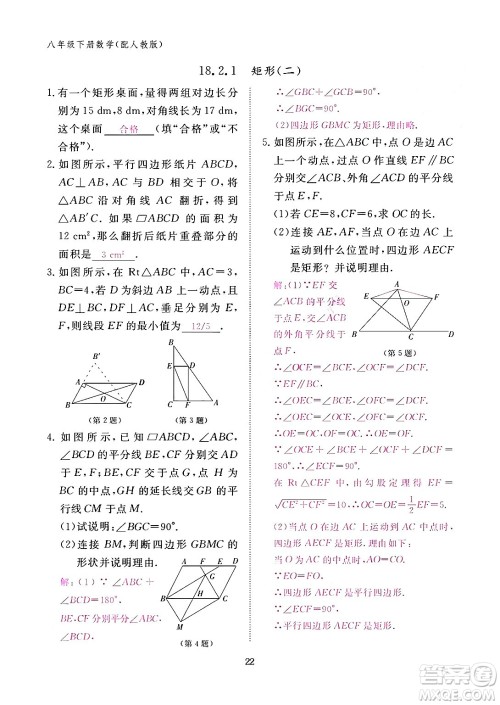 八年级下册数学(配人教版)
18.2.1 矩形(二)
1. 有一个矩形桌面,量得两组对边长分
别为 15 dm 和 8 dm,对角线长为 17 dm,
这个桌面 合格 (填“合格”或“不
合格”).
2. 如图所示,平行四边形纸片 ABCD,
AC⊥AB,AC与BD相交于点O,
将△ABC沿对角线AC翻折,得到
△AB′C.若四边形ABCD的面积为
12 cm²,则翻折后纸片重叠部分的面
积是 3 cm² .
3. 如图所示,在Rt△ABC中,AB=3,
BC=4,若D为斜边AC上的一动点,
DE⊥AB,DF⊥BC,垂足分别为点
E,F,则线段EF的最小值为 12/5 .
B′
A
D
O
B
C
(第2题)
A
E
D
B
F
C
(第3题)
4. 如图所示,已知▱ABCD,∠ABC,
∠BCD的平分线BE,CF交于点G,
点H为BC的中点,GH的延长线交平
行线CM于点M.
(1)试说明:∠BGC=90°.
(2)连接BM,判断四边形GBMC的
形状并说明理由.
解:(1)∵∠ABC+
∠BCD=180°,
BE,CF分别平分∠ABC,∠BCD,
A
F
E
D
G
B
H
C
M
(第4题)
∴∠GBC+∠GCB=90°.
∴∠BGC=90°.
(2)四边形GBMC为矩形,理由略.
5. 如图所示,在△ABC中,点O是边AC
上的一个动点,过点O作直线EF∥BC
分别交∠ACB、外角∠ACD的平分线
于点E,F.
(1)若CE=8,CF=6,求OC的长.
(2)连接AE,AF.问:当点O在边AC上
运动到什么位置时,四边形AECF
是矩形?并说明理由.
解:(1)∵EF交
∠ACB的平分线
于点E,交∠ACB
的外角平分线于
点F,
A
E
O
F
B
C
D
(第5题)
∴∠OCE=∠BCE,∠OCF=∠DCF.
∵EF∥BC,
∴∠OEC=∠BCE,∠OFC=∠DCF.
∴∠OEC=∠OCE,∠OFC=∠OCF.
∴OE=OC,OF=OC.∴OE=OF.
∵∠OCE+∠BCE+∠OCF+∠DCF=
180°,∴∠ECF=90°.
在Rt△CEF中,由勾股定理得EF=
√CE²+CF²=10.∴OC=OE=1/2EF=5.
(2)当点O在边AC上运动到AC中点时,
四边形AECF是矩形.理由如下:
当O为AC的中点时,AO=CO.
∵EO=FO,
∴四边形AECF是平行四边形.
∵∠ECF=90°,
∴平行四边形AECF是矩形.
22